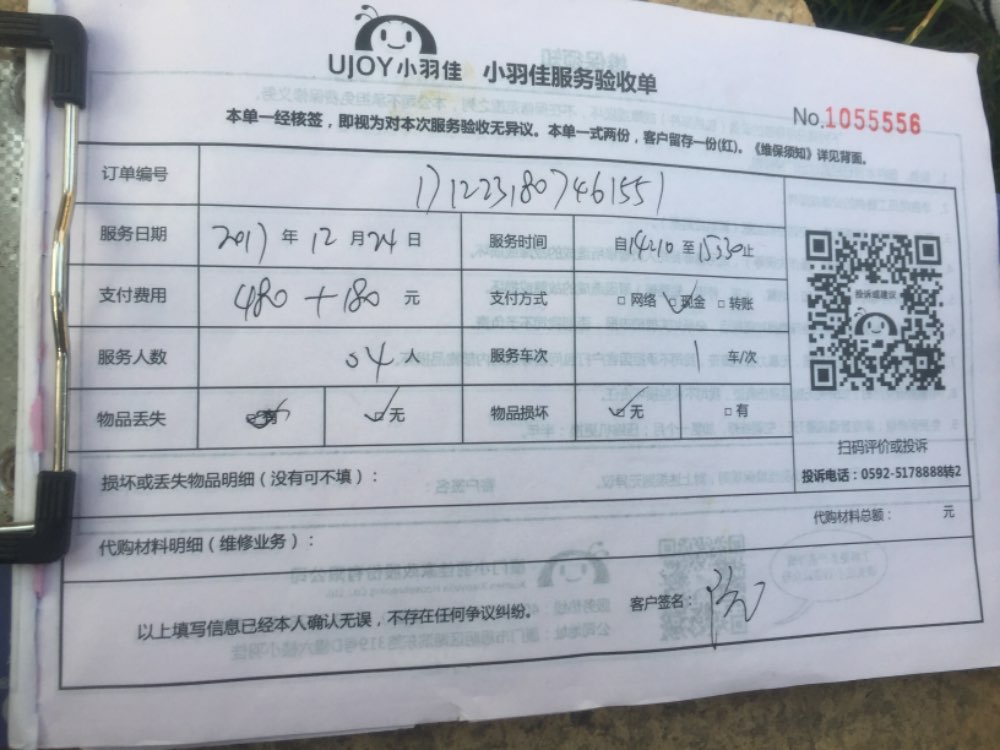 UJOY小羽佳 小羽佳服务验收单
No.1055556
本单一经核签，即视为对本次服务验收无异议。本单一式两份，客户留存一份(红)。《维保须知》详见背面。
订单编号 1712231807461551
服务日期 2017年12月24日 服务时间 自14210至1530止
支付费用 480+180元 支付方式 □网络 ☑现金 □转账
服务人数 04人 服务车次 1车/次
物品丢失 ☑无 物品损坏 ☑无 □有
投诉或建议
扫码评价或投诉
投诉电话：0592-5178888转2
损坏或丢失物品明细（没有可不填）：
代购材料明细（维修业务）： 代购材料总额： 元
以上填写信息已经本人确认无误，不存在任何争议纠纷。 客户签名：